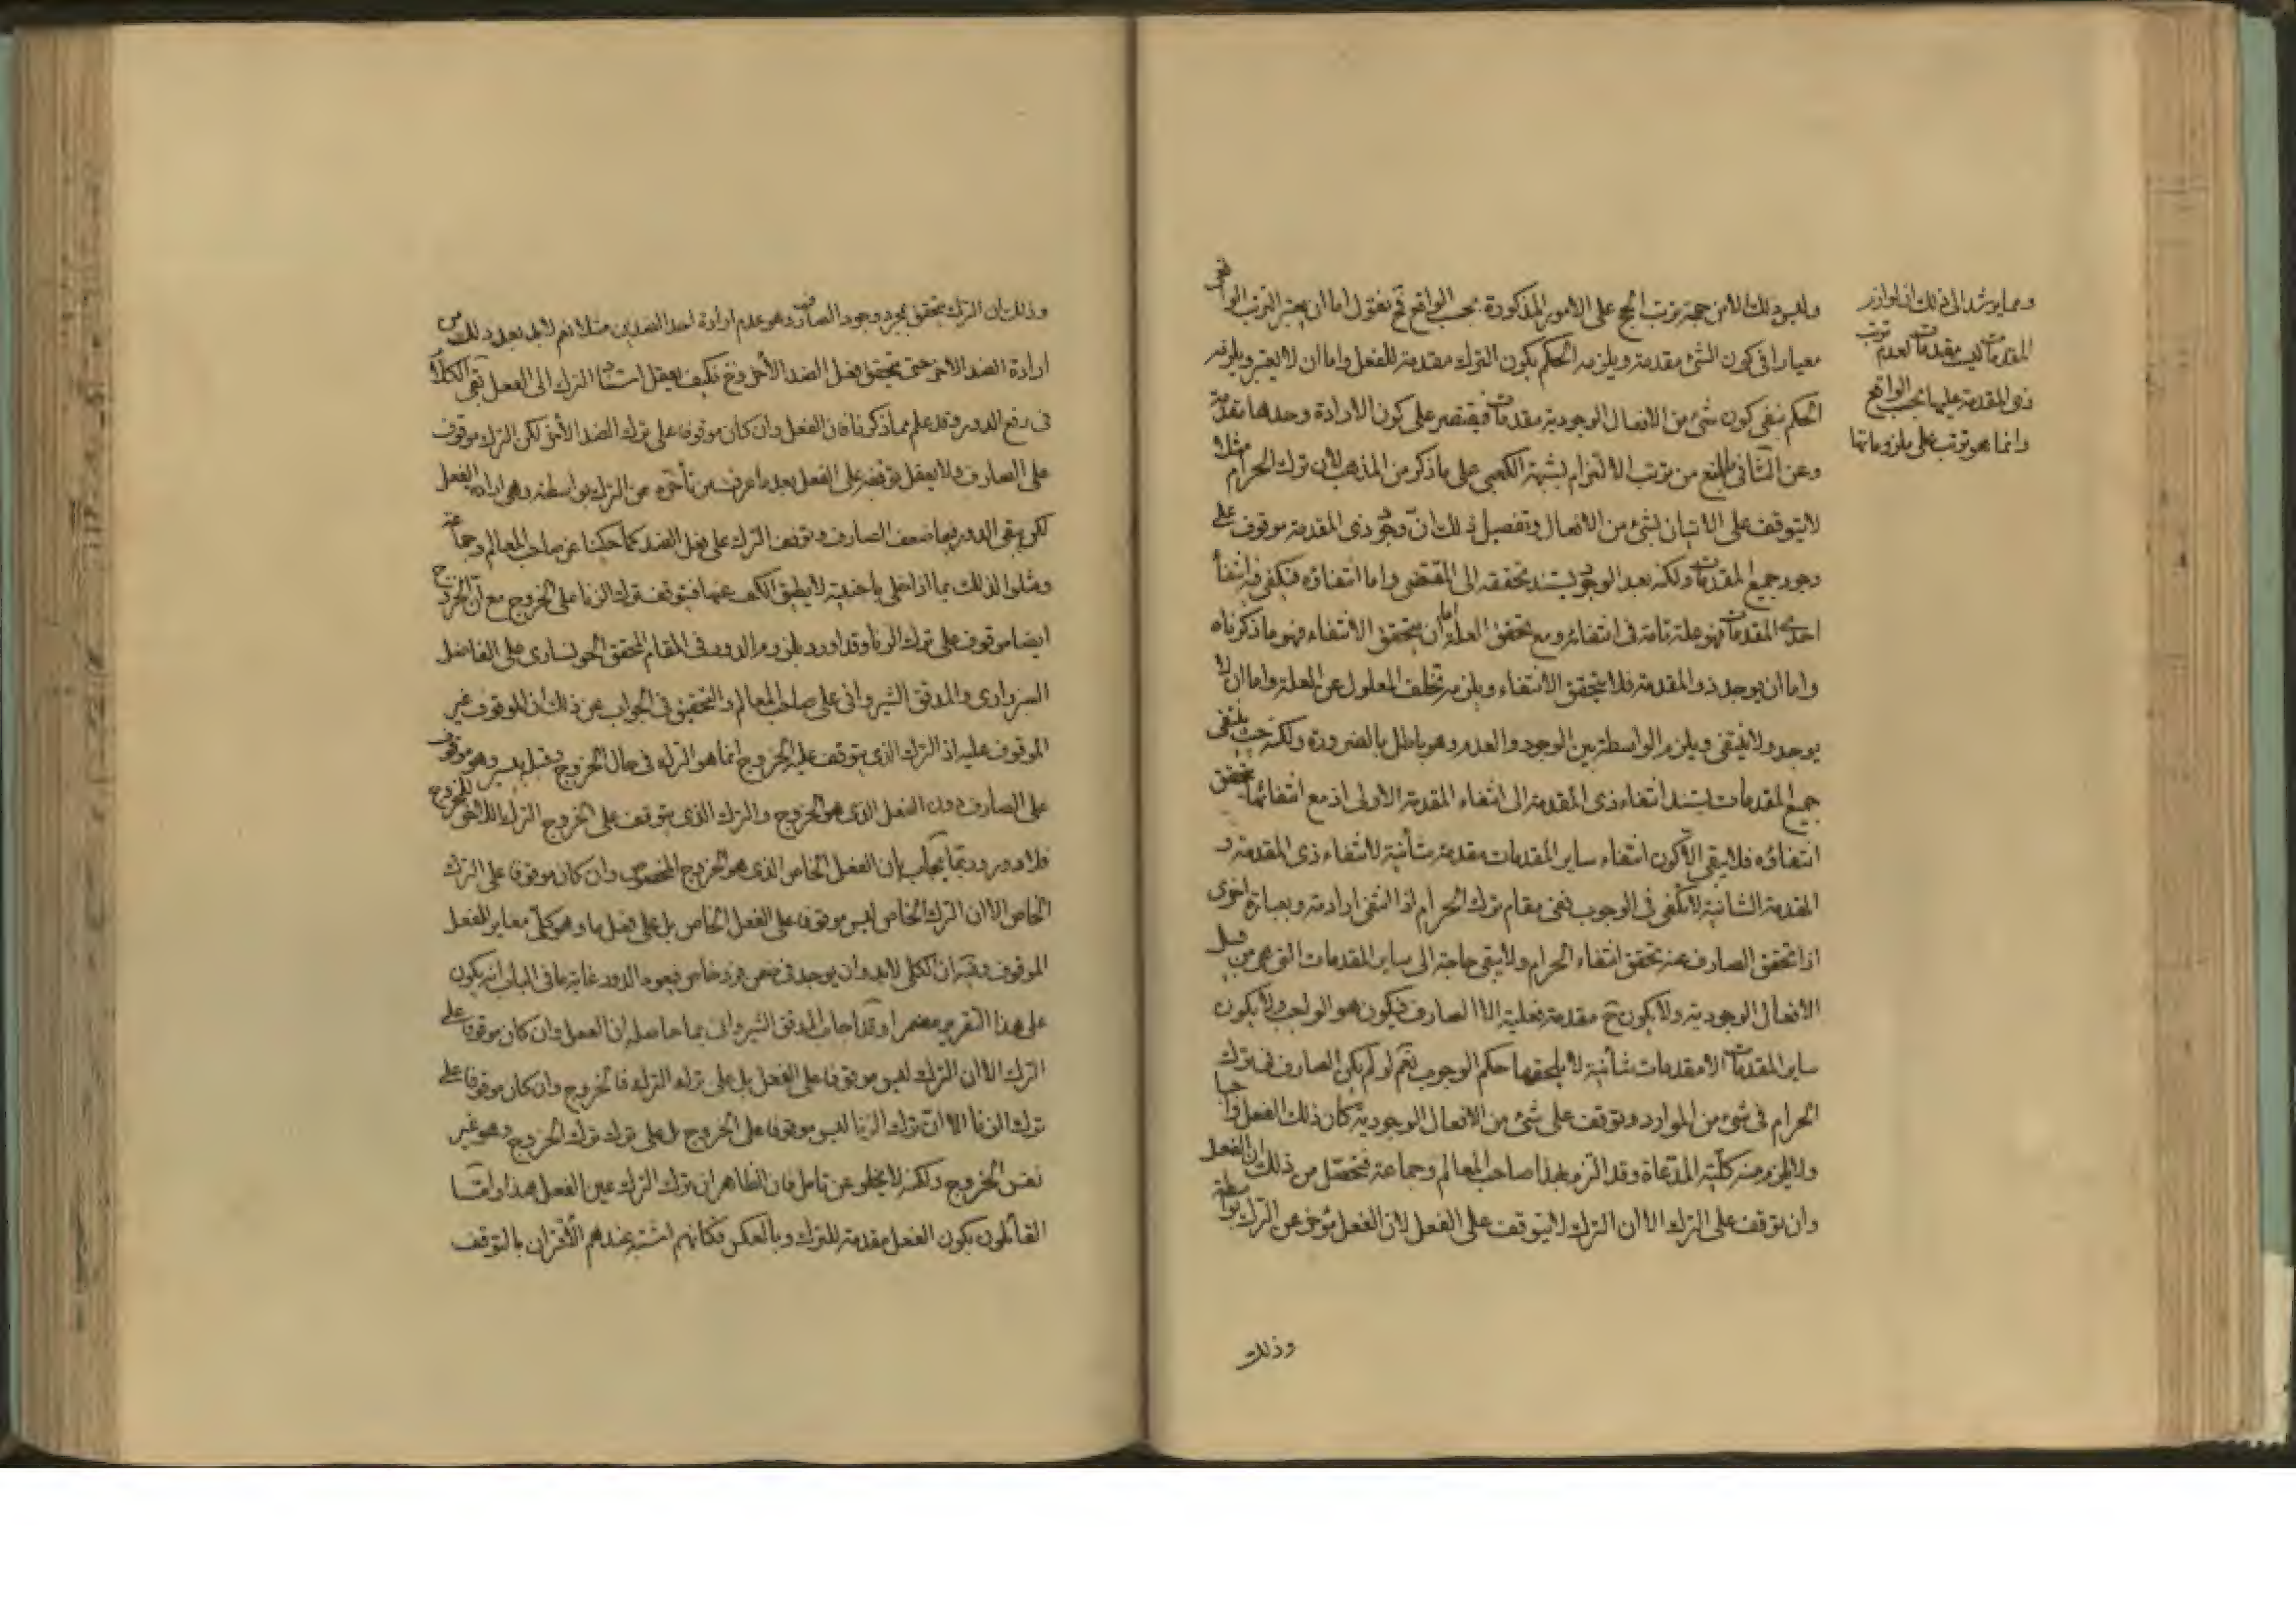 وليس ذلك الا من جهة ترتب الحج على الامور المذكورة بحسب الواقع فح نقول اما ان يعتبر الترتب الواقعى
معيارا فى كون الشئ مقدمة ويلزمه الحكم بكون الترك مقدمة للفعل واما ان لا يعتبر ويلزمه
الحكم بنفى كون شئ من الافعال الوجودية مقدمات فيقتصر على كون الارادة وحدها مقدمة
وعن الثانى بالمنع من ترتب الالتزام بشبهة الكعبى على ما ذكر من المذهب لان ترك الحرام مثلا
لا يتوقف على الاتيان بشئ من الافعال وتفصيل ذلك ان وجود ذى المقدمة موقوف على
وجود جميع المقدمات ولكنه بعد الوجود يستند تحققه الى المقتضى واما انتفاؤه فيكفى فيه انتفاء
احدى المقدمات فهو علة تامة فى انتفائه ومع تحقق العلة اما ان يتحقق الانتفاء فهو ما ذكرناه
واما ان يوجد ذو المقدمة فلا يتحقق الانتفاء ويلزم تخلف المعلول عن العلة واما ان لا
يوجد ولا ينتفى ويلزم الواسطة بين الوجود والعدم وهو باطل بالضرورة ولكنه حيث ينتفى
جميع المقدمات يستند انتفاء ذى المقدمة الى انتفاء المقدمة الاولى اذ مع انتفائها يتحقق
انتفاؤه فلا يبقى الا كون انتفاء ساير المقدمات مقدمة شأنية لانتفاء ذى المقدمة و
المقدمة الشانية لا تكفى فى الوجوب ففى مقام ترك الحرام اذا انتفى ارادته وبعبارة اخرى
اذا تحقق الصارف عنه تحقق انتفاء الحرام ولا يبقى حاجة الى ساير المقدمات التى هى من قبيل
الافعال الوجودية ولا يكون ح مقدمة فعلية الا الصارف فيكون هو الواجب ولا يكون
ساير المقدمات الا مقدمات شأنية لا يلحقها حكم الوجوب نعم لو لم يكن الصارف فى ترك
الحرام فى شئ من الموارد وتوقف على شئ من الافعال الوجودية كان ذلك الفعل واجبا
ولا يلزم منه كلية المدعاة وقد التزم بهذا صاحب المعالم وجماعة فتحصل من ذلك ان الفعل
وان توقف على الترك الا ان الترك لا يتوقف على الفعل لان الفعل مؤخر عن الترك بواسطة
وذلك
ومما يرشد الى ذلك ان لوازم
المقدمات ليست مقدمات لعدم ترتب
ذى المقدمة عليها بحسب الواقع
وانما هو ترتب على ملزوماتها
وذلك ان الترك يتحقق بمجرد وجود الصارف وهو عدم ارادة احد الضدين مثلا نعم لابد بعد ذلك من
ارادة الضد الاخر حتى يتحقق فعل الضد الاخر وح فكيف يعقل استناد الترك الى الفعل بقى الكلام
فى رفع الدور وقد علم مما ذكرنا فان الفعل وان كان موقوفا على ترك الضد الاخر لكن الترك موقوف
على الصارف ولا يعقل توقفه على الفعل بعد ما عرفت من تأخره عن الترك بواسطة وهى ارادة الفعل
لكن يبقى الدور فيما ضعف الصارف وتوقف الترك على فعل الضد كما حكينا عن صاحب المعالم وجماعة
ومثلوا لذلك بما اذا خلى باجنبية لا يطيق الكف عنها فيتوقف ترك الزنا على الخروج مع ان الخروج
ايضا موقوف على ترك الزنا وقد اورد بلزوم الدور فى المقام المحقق الخونسارى على الفاضل
السبزوارى والمدقق الشيروانى على صاحب المعالم والتحقيق فى الجواب عن ذلك ان الموقوف غير
الموقوف عليه اذ الترك الذى يتوقف عليه الخروج انما هو الترك فى حال الخروج وهو موقوف
على الصارف دون الفعل الذى هو الخروج والترك الذى يتوقف على الخروج الترك اللاحق للخروج
فلا دور وربما يجاب بان الفعل الخاص الذى هو الخروج المخصوص وان كان موقوفا على الترك
الخاص الا ان الترك الخاص ليس موقوفا على الفعل الخاص بل على فعل ما وهو كلى مغاير للفعل
الموقوف وفيه ان الكلى لابد وان يوجد فى ضمن فرد خاص فيعود الدور غاية ما فى الباب انه يكون
على هذا التقرير مضمرا وقد اجاب المدقق الشيروانى بما حاصله ان الفعل وان كان موقوفا على
الترك الا ان الترك ليس موقوفا على الفعل بل على ترك الترك فالخروج وان كان موقوفا على
ترك الزنا الا ان ترك الزنا ليس موقوفا على الخروج بل على ترك ترك الخروج وهو غير
نفس الخروج ولكنه لا يخلو عن تامل فان الظاهر ان ترك الترك عين الفعل هذا واما
القائلون بكون الفعل مقدمة للترك وبالعكس فكانهم اشتبه عندهم الاقتران بالتوقف